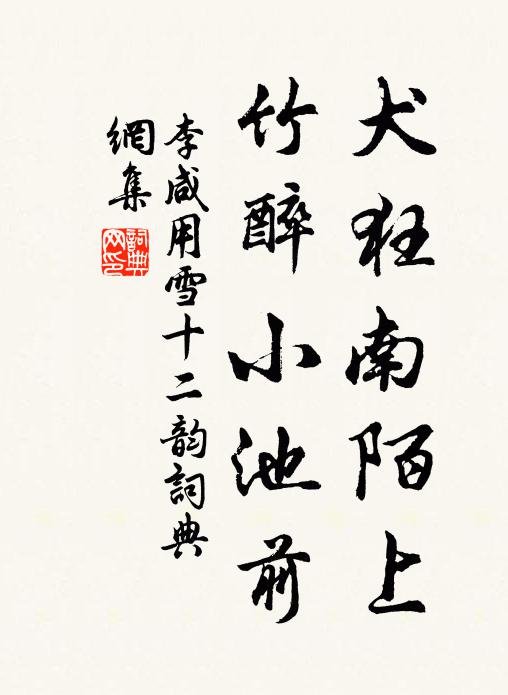 犬狂南陌上
竹醉小池前
李咸用雪十二韵詞典
網集
詞典
网印